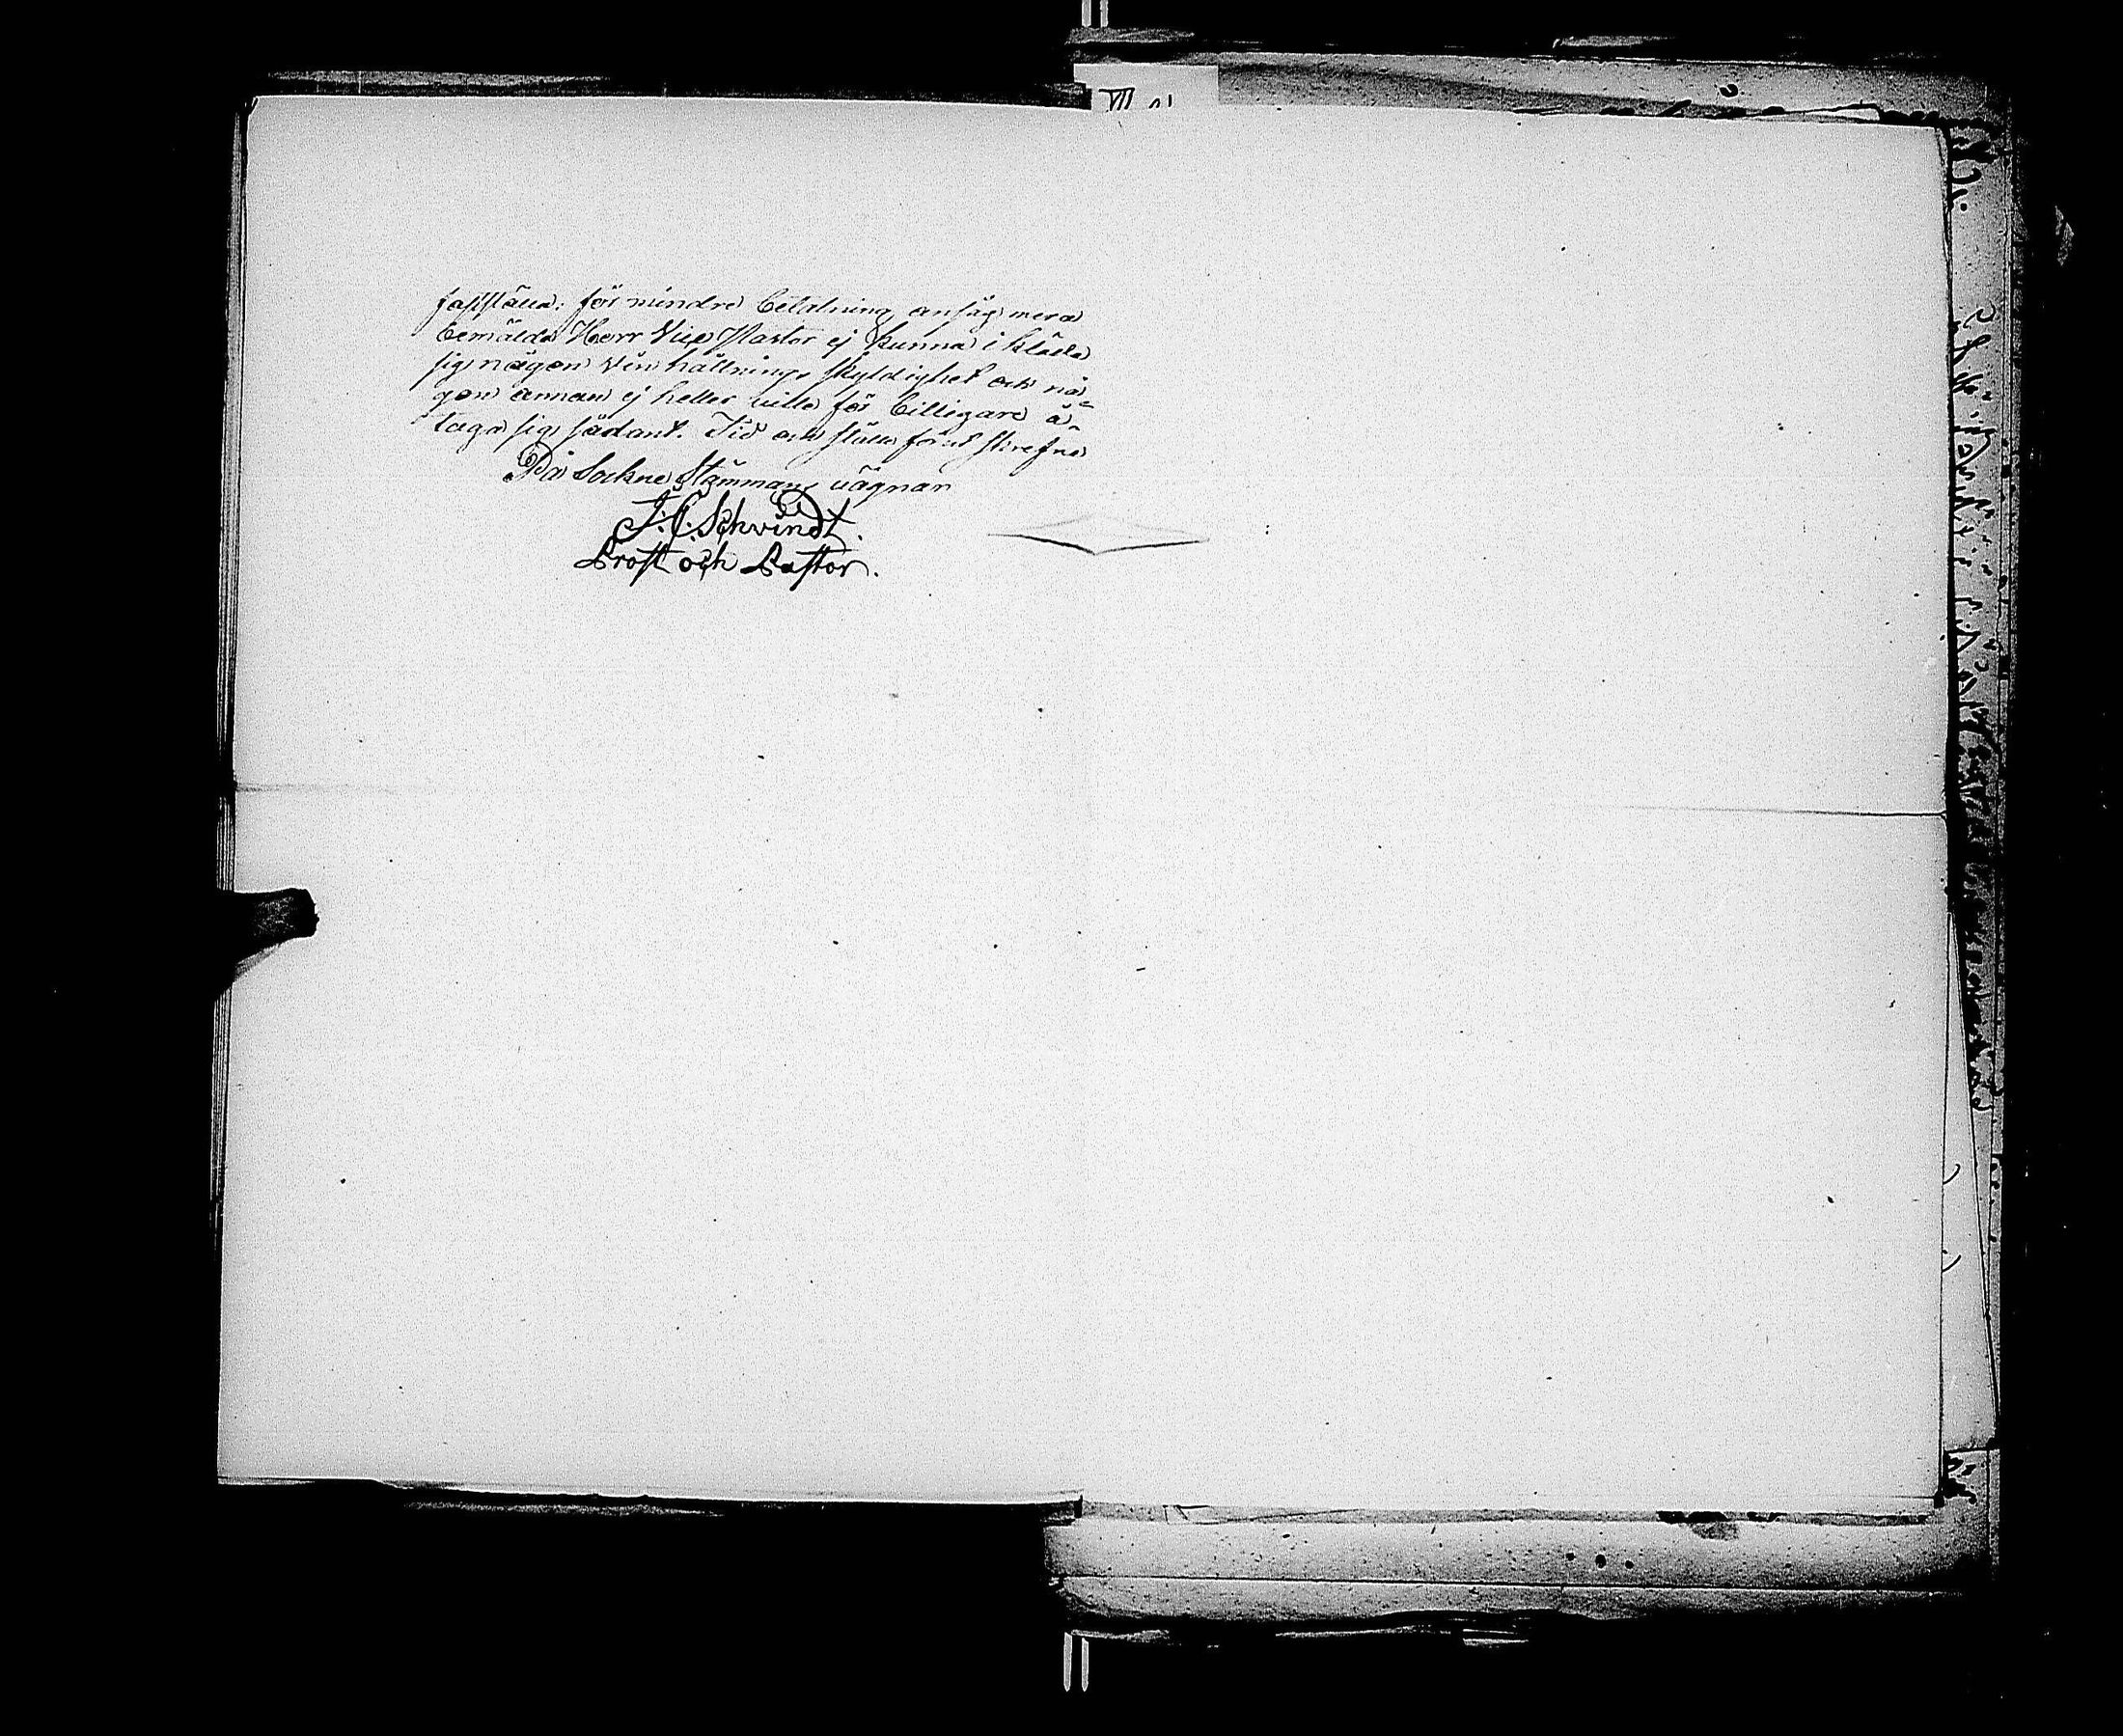 VII
fastställa: för mindre betalning ansåg mera
bemälde Herr Vice Pastor ej kunna ikläda
sig någon Vinhållnings skyldighet och nå-
gon annan ej heller ville för billigare å-
taga sig sådant. Tid och ställe förut skrefne
På Sockne Stämmans vägnar
J. C. Schvindt.
Prost och Pastor.